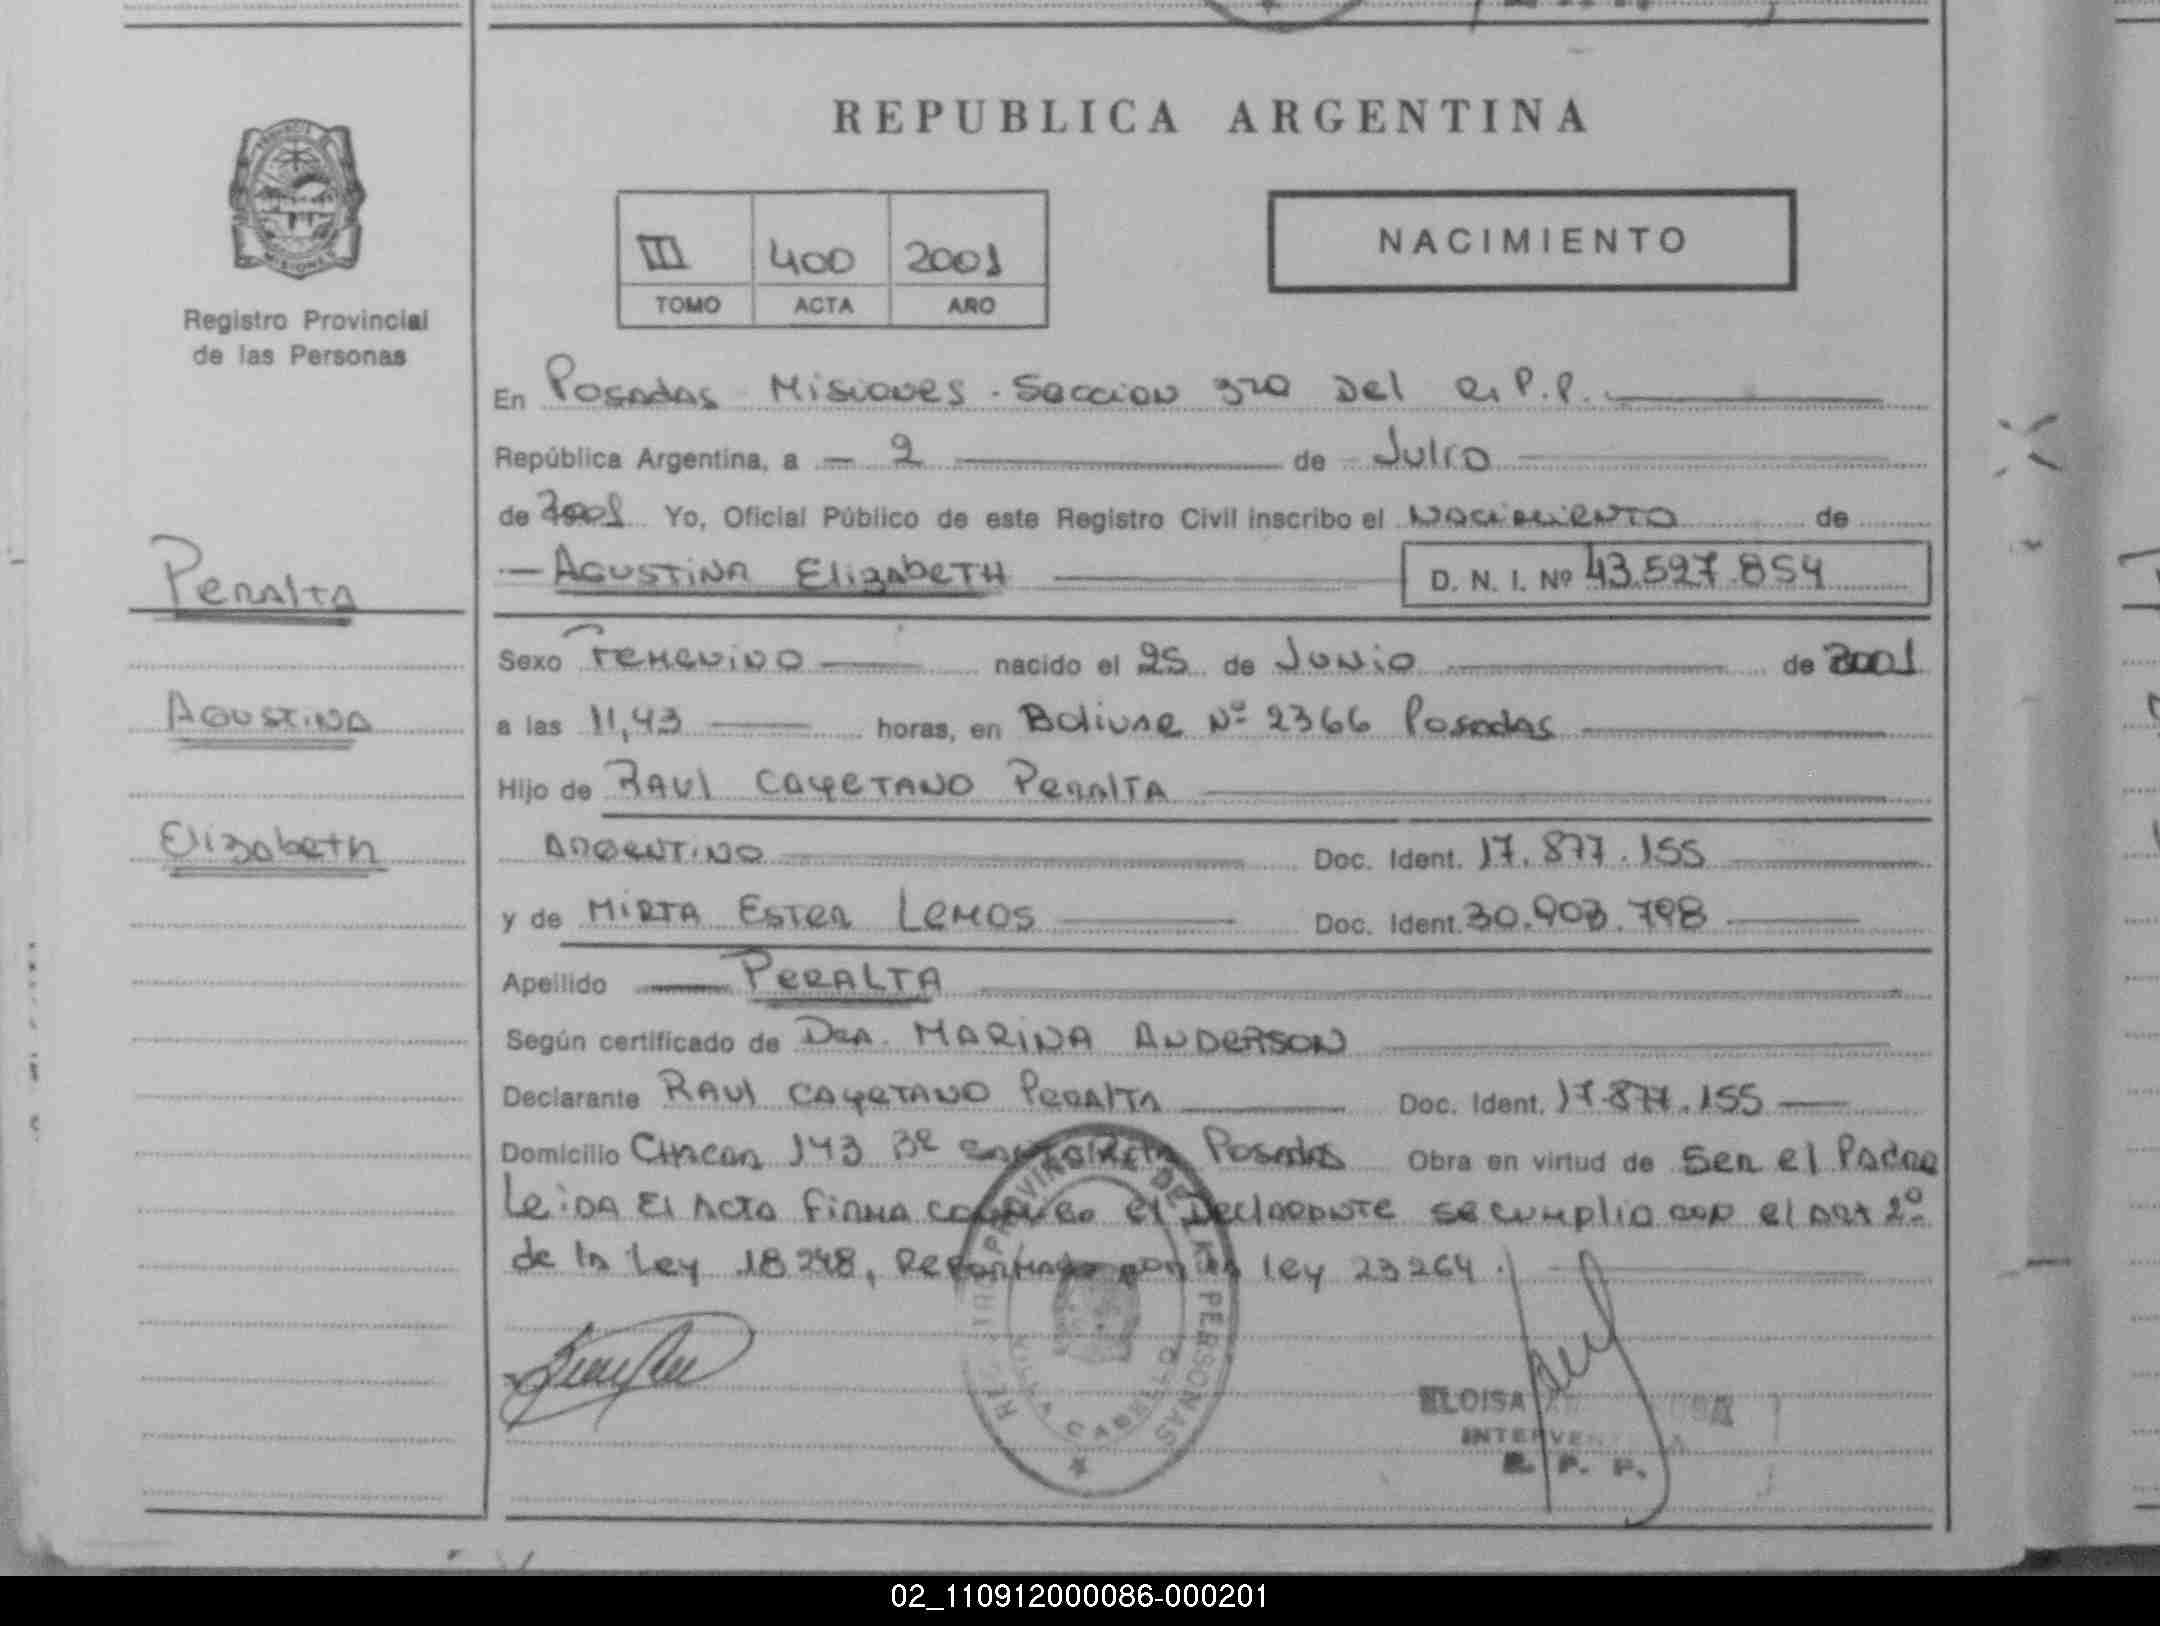 REPUBLICA ARGENTINA
PROVINCIA
MISIONES
Registro Provincial
de las Personas
III 400 2001
TOMO ACTA AÑO
NACIMIENTO
En Posadas Misiones - Seccion 3ra Del R.P.P.
República Argentina, a - 2 de Julio
de 2001 Yo, Oficial Público de este Registro Civil inscribo el Nacimiento de
Agustina Elizabeth D. N. I. Nº 43.527.854
Peralta
Agustina
Elizabeth
Sexo Femenino nacido el 25 de Junio de 2001
a las 11,43 horas, en Bolivar Nº 2366 Posadas
Hijo de Raul Cayetano Peralta
Argentino Doc. Ident. 17.877.155
y de Mirta Ester Lemos Doc. Ident. 30.903.798
Apellido Peralta
Según certificado de Dra. Marina Anderson
Declarante Raul Cayetano Peralta Doc. Ident. 17.877.155
Domicilio Chacra 143 Bº Santa Rita Posadas Obra en virtud de Ser el Padre
Leida El Acta firma conmigo el Declarante se cumplio con el art 2º
de la Ley 18248, Reformado por la ley 23264.
REGISTRO PROVINCIAL DE LAS PERSONAS
VILLA CABELLO
ELOISA
R. P. P.
02_110912000086-000201